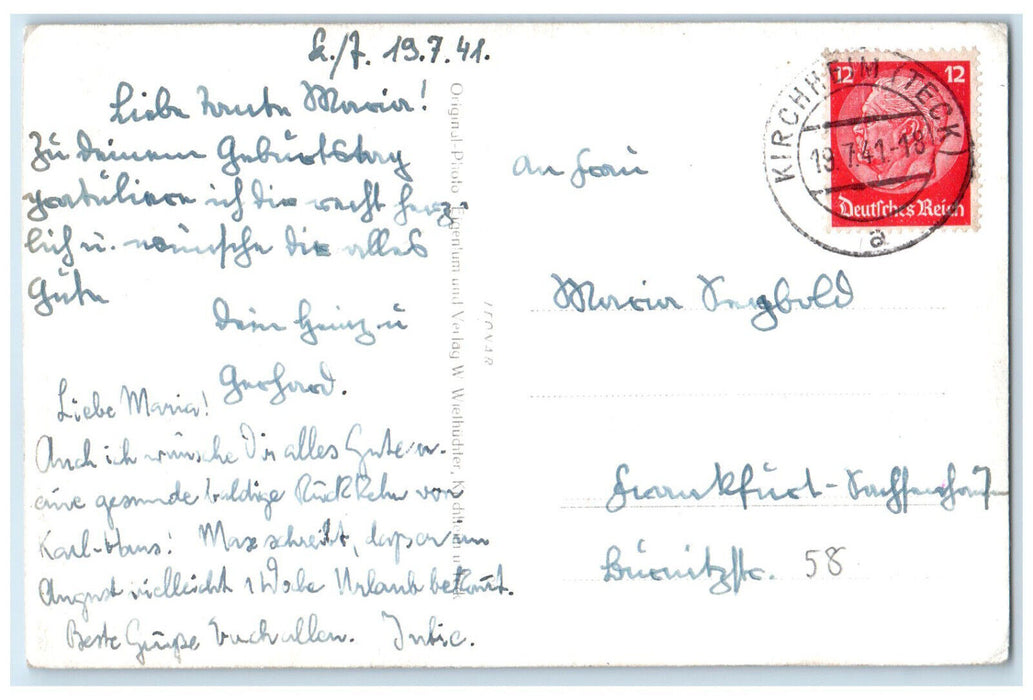 K./T. 19.7.41.
Liebe Tante Maria!
Zu deinem Geburtstag
gratuliere ich dir recht herz-
lich u. wünsche dir alles
Gute
Dein Heinz u
Gerhard.
Liebe Maria!
Auch ich wünsche Dir alles Gute u.
eine gesunde baldige Rückkehr von
Karl-Hans! Max schreibt, daß er im
August vielleicht 1 Woche Urlaub bekommt.
Beste Grüße Euch allen.
Original-Photo Eigentum und Verlag W. Wielhüchter, Kirchheim u
12 12
Deutsches Reich
KIRCHHEIM (TECK)
19.7.41.-18
a
An Frau
Maria Seybold
Frankfurt-Sachsenhau
58